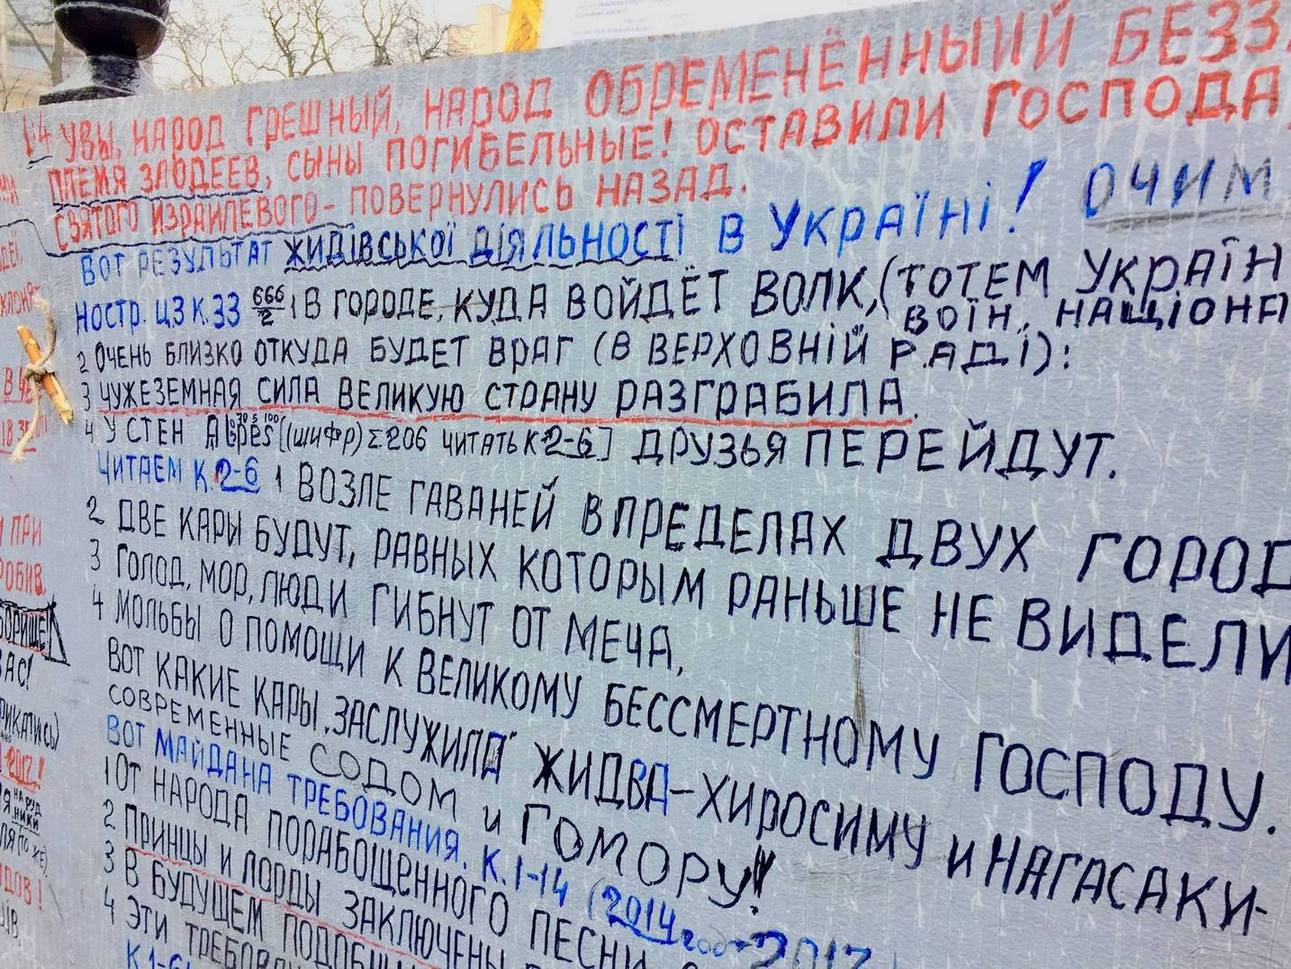 1.4 УВЫ, НАРОД ГРЕШНЫЙ, НАРОД ОБРЕМЕНЁННЫИЙ БЕЗЗ
ПЛЕМЯ ЗЛОДЕЕВ, СЫНЫ ПОГИБЕЛЬНЫЕ! ОСТАВИЛИ ГОСПОДА,
СВЯТОГО ИЗРАИЛЕВОГО - ПОВЕРНУЛИСЬ НАЗАД.
ВОТ РЕЗУЛЬТАТ ЖИДІВСЬКОЇ ДІЯЛЬНОСТІ В УКРАЇНІ! ОЧИМ
НОСТР. Ц3 К.33 666/2 1 В ГОРОДЕ, КУДА ВОЙДЁТ ВОЛК, (ТОТЕМ УКРАЇН
ВОЇН. НАЦІОНА
2 ОЧЕНЬ БЛИЗКО ОТКУДА БУДЕТ ВРАГ (В ВЕРХОВНІЙ РАДІ):
3 ЧУЖЕЗЕМНАЯ СИЛА ВЕЛИКУЮ СТРАНУ РАЗГРАБИЛА.
4 У СТЕН Alpes [(ШИФР) Σ206 ЧИТАТЬ К 2-6] ДРУЗЬЯ ПЕРЕЙДУТ.
ЧИТАЕМ К. 2-6 1 ВОЗЛЕ ГАВАНЕЙ В ПРЕДЕЛАХ ДВУХ ГОРОД
2 ДВЕ КАРЫ БУДУТ, РАВНЫХ КОТОРЫМ РАНЬШЕ НЕ ВИДЕЛИ
3 ГОЛОД, МОР, ЛЮДИ ГИБНУТ ОТ МЕЧА,
4 МОЛЬБЫ О ПОМОЩИ К ВЕЛИКОМУ БЕССМЕРТНОМУ ГОСПОДУ.
ВОТ КАКИЕ КАРЫ "ЗАСЛУЖИЛА" ЖИДВА - ХИРОСИМУ И НАГАСАКИ-
СОВРЕМЕННЫЕ СОДОМ И ГОМОРУ!
ВОТ МАЙДАНА ТРЕБОВАНИЯ. К. 1-14 (2014 год - 2017
1 ОТ НАРОДА ПОРАБОЩЕННОГО ПЕСНИ
2 ПРИНЦЫ И ЛОРДЫ ЗАКЛЮЧЕНЫ
3 В БУДУЩЕМ ПОДОБНЫ
4 ЭТИ ТРЕБОВА
К 1-